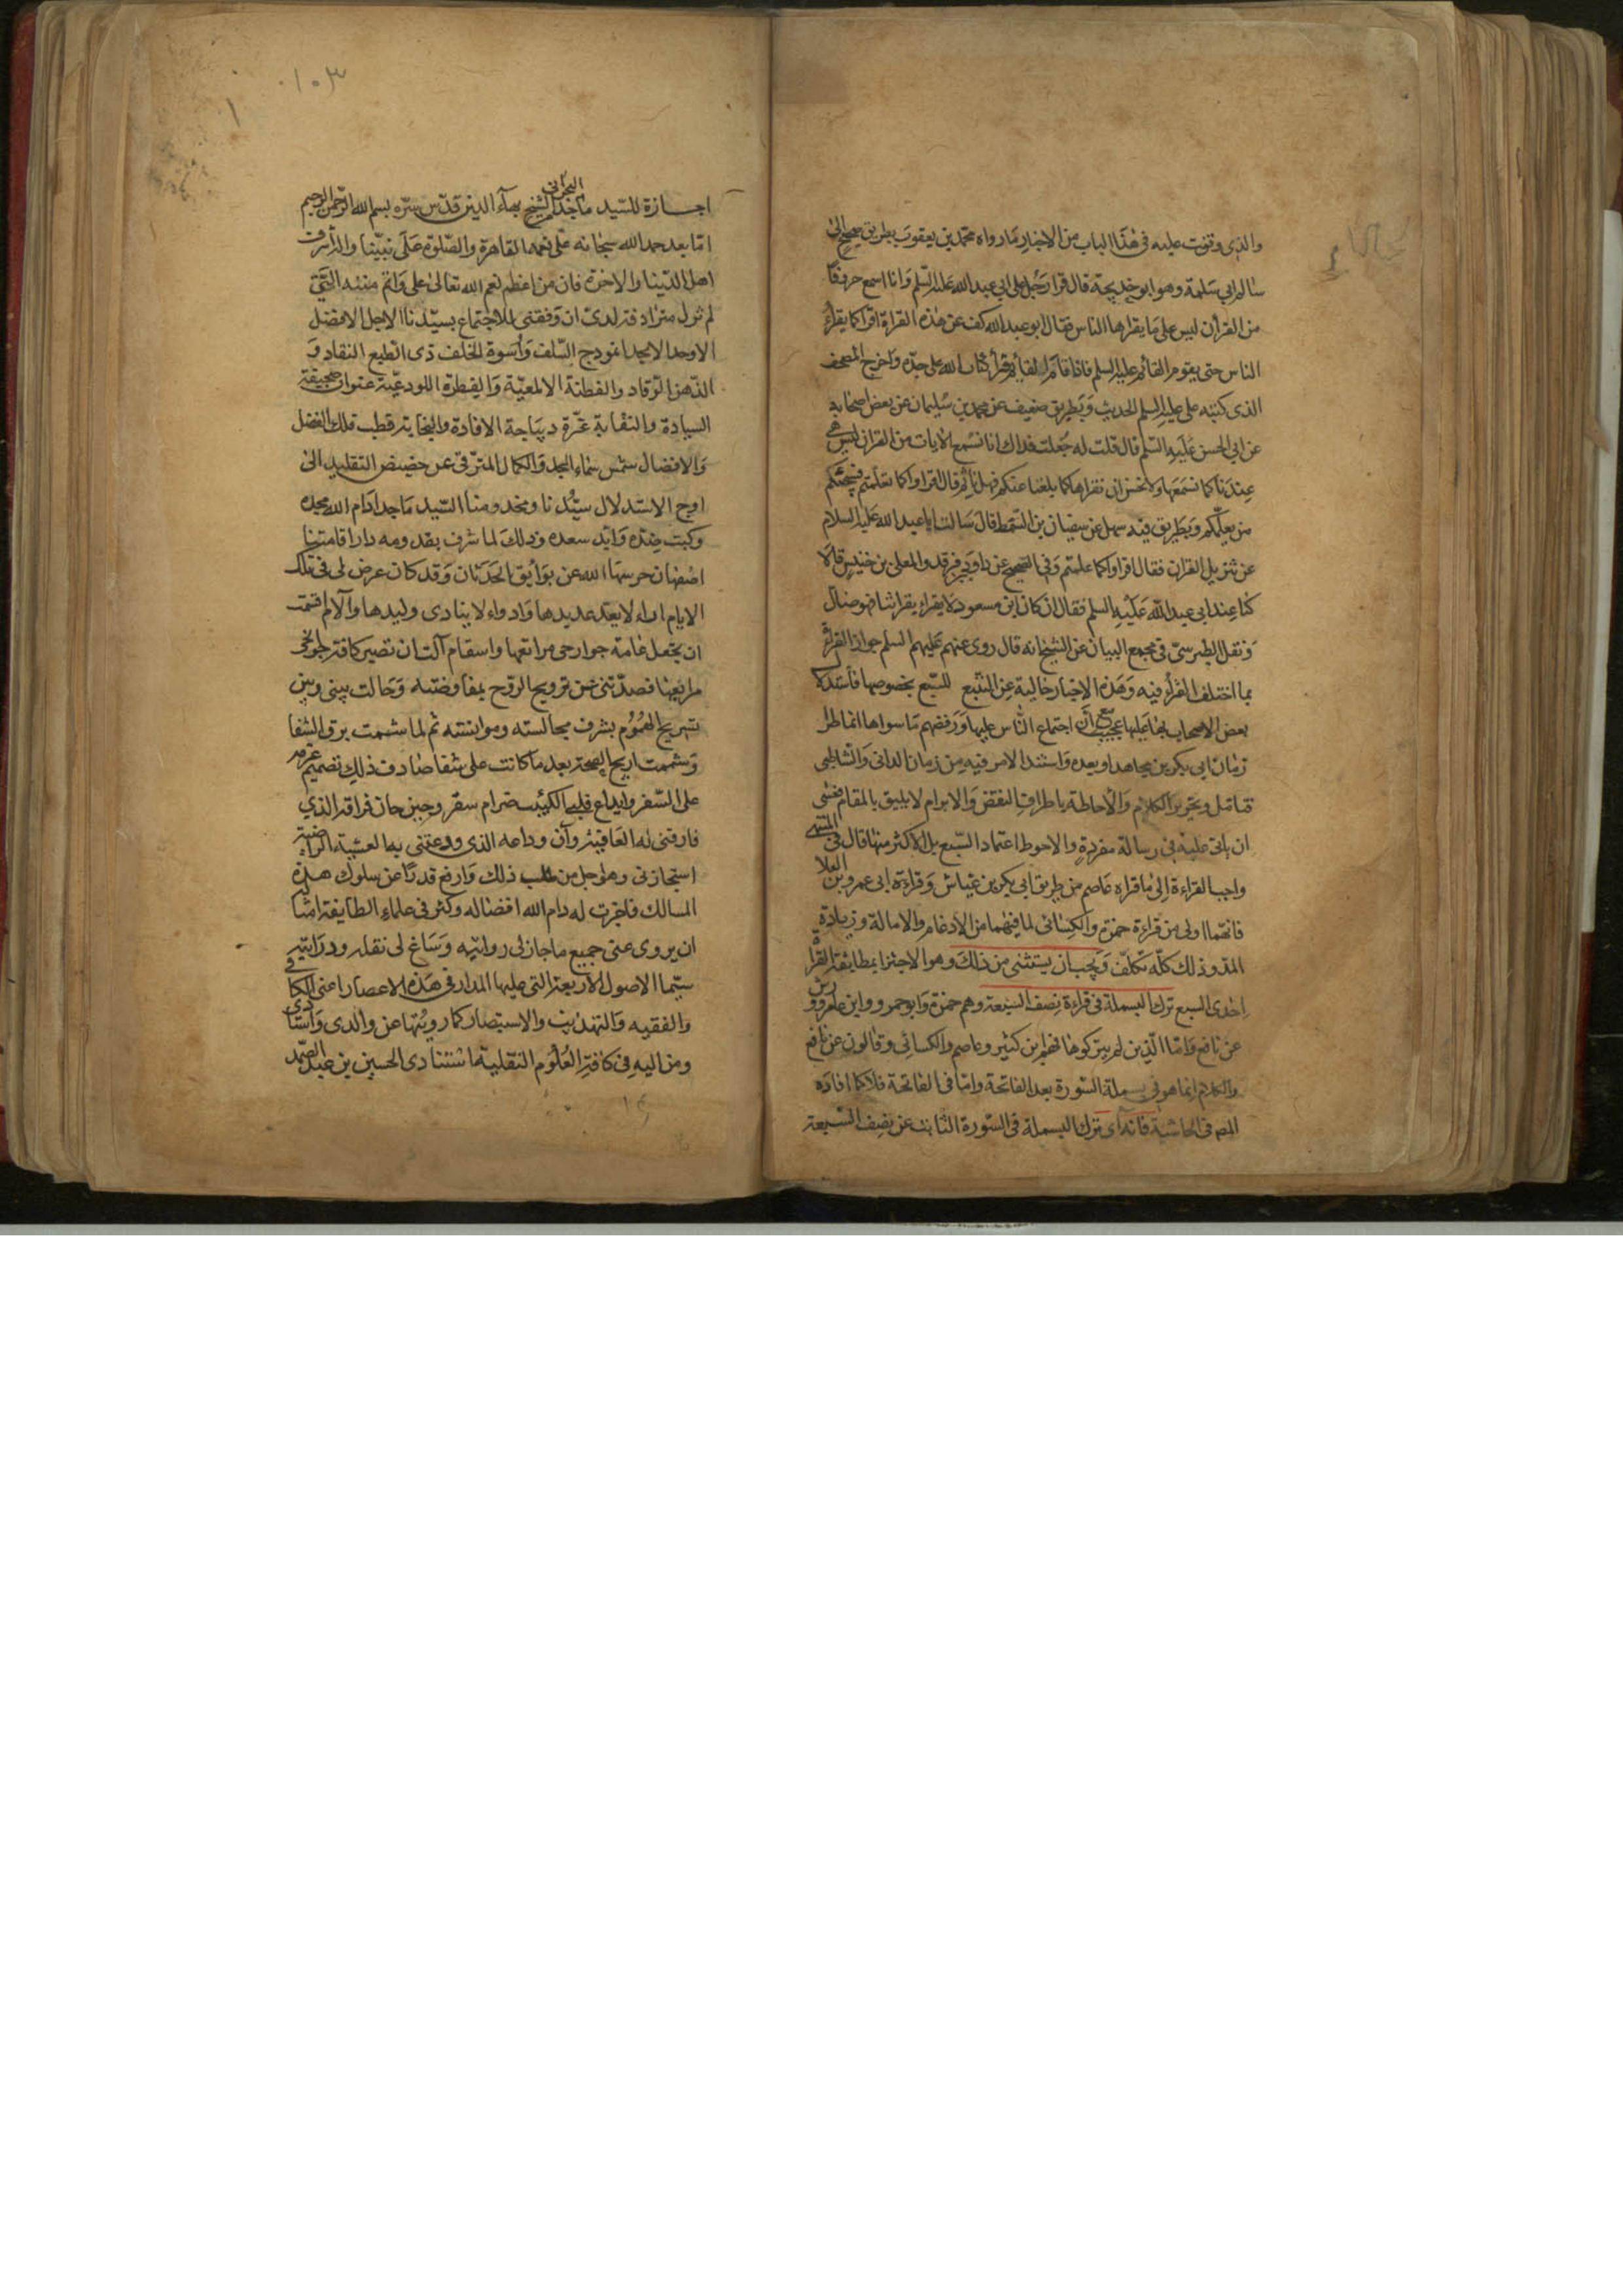 والذى وقفت عليه فى هذا الباب من الاخبار مارواه محمد بن يعقوب بطريق صحيح الى
سالم ابى سلمة وهو ابو خديجة قال قرا رجل على ابى عبد الله عليه السلم وانا اسمع حرفا
من القرآن ليس على ما يقراها الناس فقال ابو عبد الله كف عن هذه القراءة اقرا كما يقرا
الناس حتى يقوم القائم عليه السلم فاذا قام القائم قرأ كتاب الله على حده واخرج المصحف
الذى كتبه على عليه السلم الحديث وبطريق ضعيف عن محمد بن سليمان عن بعض اصحابه
عن ابى الحسن عليه السلم قال قلت له جعلت فداك انا نسمع الآيات من القرآن ليس هى
عندنا كما نسمعها ولا نحسن ان نقراها كما بلغنا عنكم فهل نأثم قال لا اقراوا كما تعلمتم فيجئكم
من يعلمكم وبطريق فيه سهل عن سفيان بن السمط قال سالت ابا عبد الله عليه السلام
عن تنزيل القران فقال اقراوا كما علمتم وفى الصحيح عن داود بن فرقد والمعلى بن خنيس قالا
كنا عند ابى عبد الله عليه السلم فقال ان كان ابن مسعود لا يقراء بقرائتنا فهو ضال
ونقل الطبرسى فى مجمع البيان عن الشيخ انه قال روى عنهم عليهم السلم جواز القراءة
بما اختلف القرأ فيه وهذه الاخبار خالية عن التتبع للسبع بخصوصها فاستدلال
بعض الاصحاب بها عليها عجيب مع أن اجتماع الناس عليها ورفضهم ما سواها انما طرا
زمان ابى بكر بن مجاهد او بعده واستند الامر فيه من زمان الدانى والشاطبى
فتامل وتحرير الكلام والاحاطة باطراف النقض والابرام لا يليق بالمقام فعسى
ان ياتى عليه فى رسالة مفردة والاحوط اعتماد السبع بل الاكثر منها قال فى المنتهى
واجب القراءة الى ما قراه عاصم من طريق ابى بكر بن عياش وقراءة ابى عمرو بن العلا
فانهما اولى من قراءة حمزة والكسائى لما فيهما من الادغام والامالة وزيادة
المد وذلك كله تكلف ويجب ان يستثنى من ذلك وهو الاجتزا بمطابقة القرا
احدى السبع ترك البسملة فى قراءة نصف السبعة وهم حمزة وابو عمرو وابن عامر وورش
عن نافع واما الذين لم يتركوها فهم ابن كثير وعاصم والكسائى وقالون عن نافع
والكلام انما هو فى بسملة السورة بعد الفاتحة واما فى الفاتحة فلا كما افاده
المصـ فى الحاشية فانه اى ترك البسملة فى السورة الثابت عن نصف السبعة
١٠٣
١
اجازة للسيد ماجد البحرانى للشيخ بهآء الدين قدس سره بسم الله الرحمن الرحيم
اما بعد حمد الله سبحانه على نعمه القاهرة والصلوة على نبينا واله اشرف
اهل الدنيا والاخرة فان من اعظم نعم الله تعالى على واتم مننه التى
لم تزل مترادفة لدى ان وفقنى للاجتماع بسيدنا الاجل الافضل
الاوحد الامجد انموذج السلف واسوة الخلف ذى الطبع النقاد و
الذهن الوقاد والفطنة الالمعية والفطرة اللوذعية عنوان صحيفة
السيادة والنقابة غرة ديباجة الافادة والنجابة قطب فلك الفضل
والافضال شمس سماء المجد والكمال المترقى عن حضيض التقليد الى
اوج الاستدلال سيدنا ومخدومنا السيد ماجد ادام الله مجده
وكبت ضده وايد سعده وذلك لما شرف بقدومه دار اقامتنا
اصفهان حرسها الله عن بوايق الحدثان وقد كان عرض لى فى تلك
الايام ادواء لا يعد عديدها وادواء لا ينادى وليدها وآلام اقسمت
ان تجعل عامة جوارحى مراتعها واسقام آلت ان تصير كافة جوانحى
مرابعها فصدتنى عن ترويح الروح بمفاوضته وحالت بينى وبين
تسريح الهموم بشرف مجالسته وموانسته ثم لما شمت برق الشفا
وشممت اريج الصحة بعد ما كانت على شفا صادف ذلك تصميم عزمه
على السفر وايداع قلبى الكئيب ضرام سقر وحين حان فراقه الذى
فارقنى له العافية وآن وداعه الذى ودعتنى بها لعيشة الراضية
استجازنى وهو اجل من طلب ذلك وارفع قدرا عن سلوك هذه
المسالك فاجزت له دام الله افضاله وكثر فى علماء الطايفة امثاله
ان يروى عنى جميع ما جاز لى روايته وساغ لى نقله ودرايته
سيما الاصول الاربعة التى عليها المدار فى هذه الاعصار اعنى الكافى
والفقيه والتهذيب والاستبصار كما رويتها عن والدى واستادى
ومن اليه فى كافة العلوم النقلية استنادى الحسين بن عبد الصمد